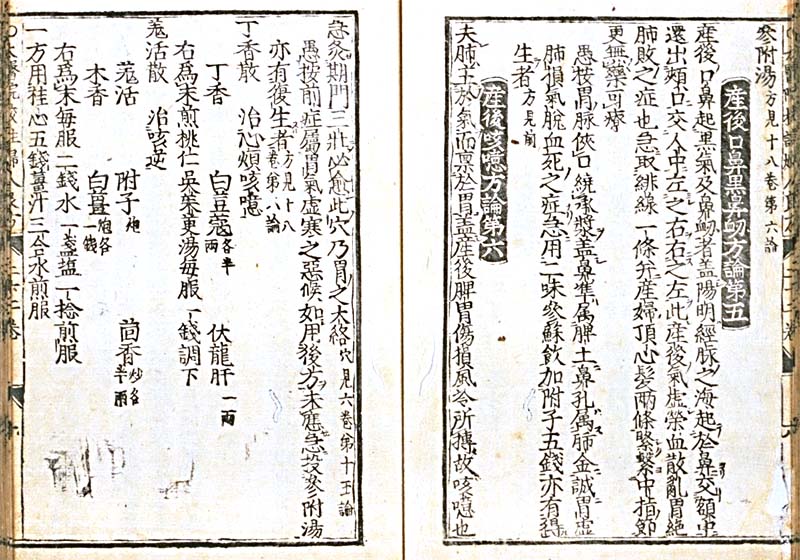 參附湯方見十八卷第六論
産後口鼻黒鼻衂方論第五
産後口鼻起黒氣及鼻衂者盖陽明經脉之海起於鼻交頞中
還出頰口交人中左之右右之左此産後氣虚榮血散亂胃絶
肺敗之症也急取緋線一條并産婦頂心髮兩條緊繫中指節
更無藥可療
愚按胃脉俠口繞承漿盖鼻準属脾土鼻孔属肺金誠胃虚
肺損氣脱血死之症急用二味參蘇飲加附子五錢亦有得
生者方見前
産後咳噫方論第六
夫肺主於氣而禀於胃盖産後脾胃傷損風冷所摶故咳噫也
急灸期門三壯必愈此穴乃胃之大絡穴見六卷第十五論
愚按前症属胃氣虚寒之惡候如用後方未應急投參附湯
亦有復生者方見十八卷第八論
丁香散 治心煩咳噫
丁香 白豆蔻各半兩 伏龍肝一兩
右爲末煎桃仁吳茱萸湯毎服一錢調下
羗活散 治咳逆
羗活 附子炮 茴香炒各半兩
木香 白薑炮各一錢
右爲末毎服二錢水一盞塩一捻煎服
一方用桂心五錢薑汁三合水煎服